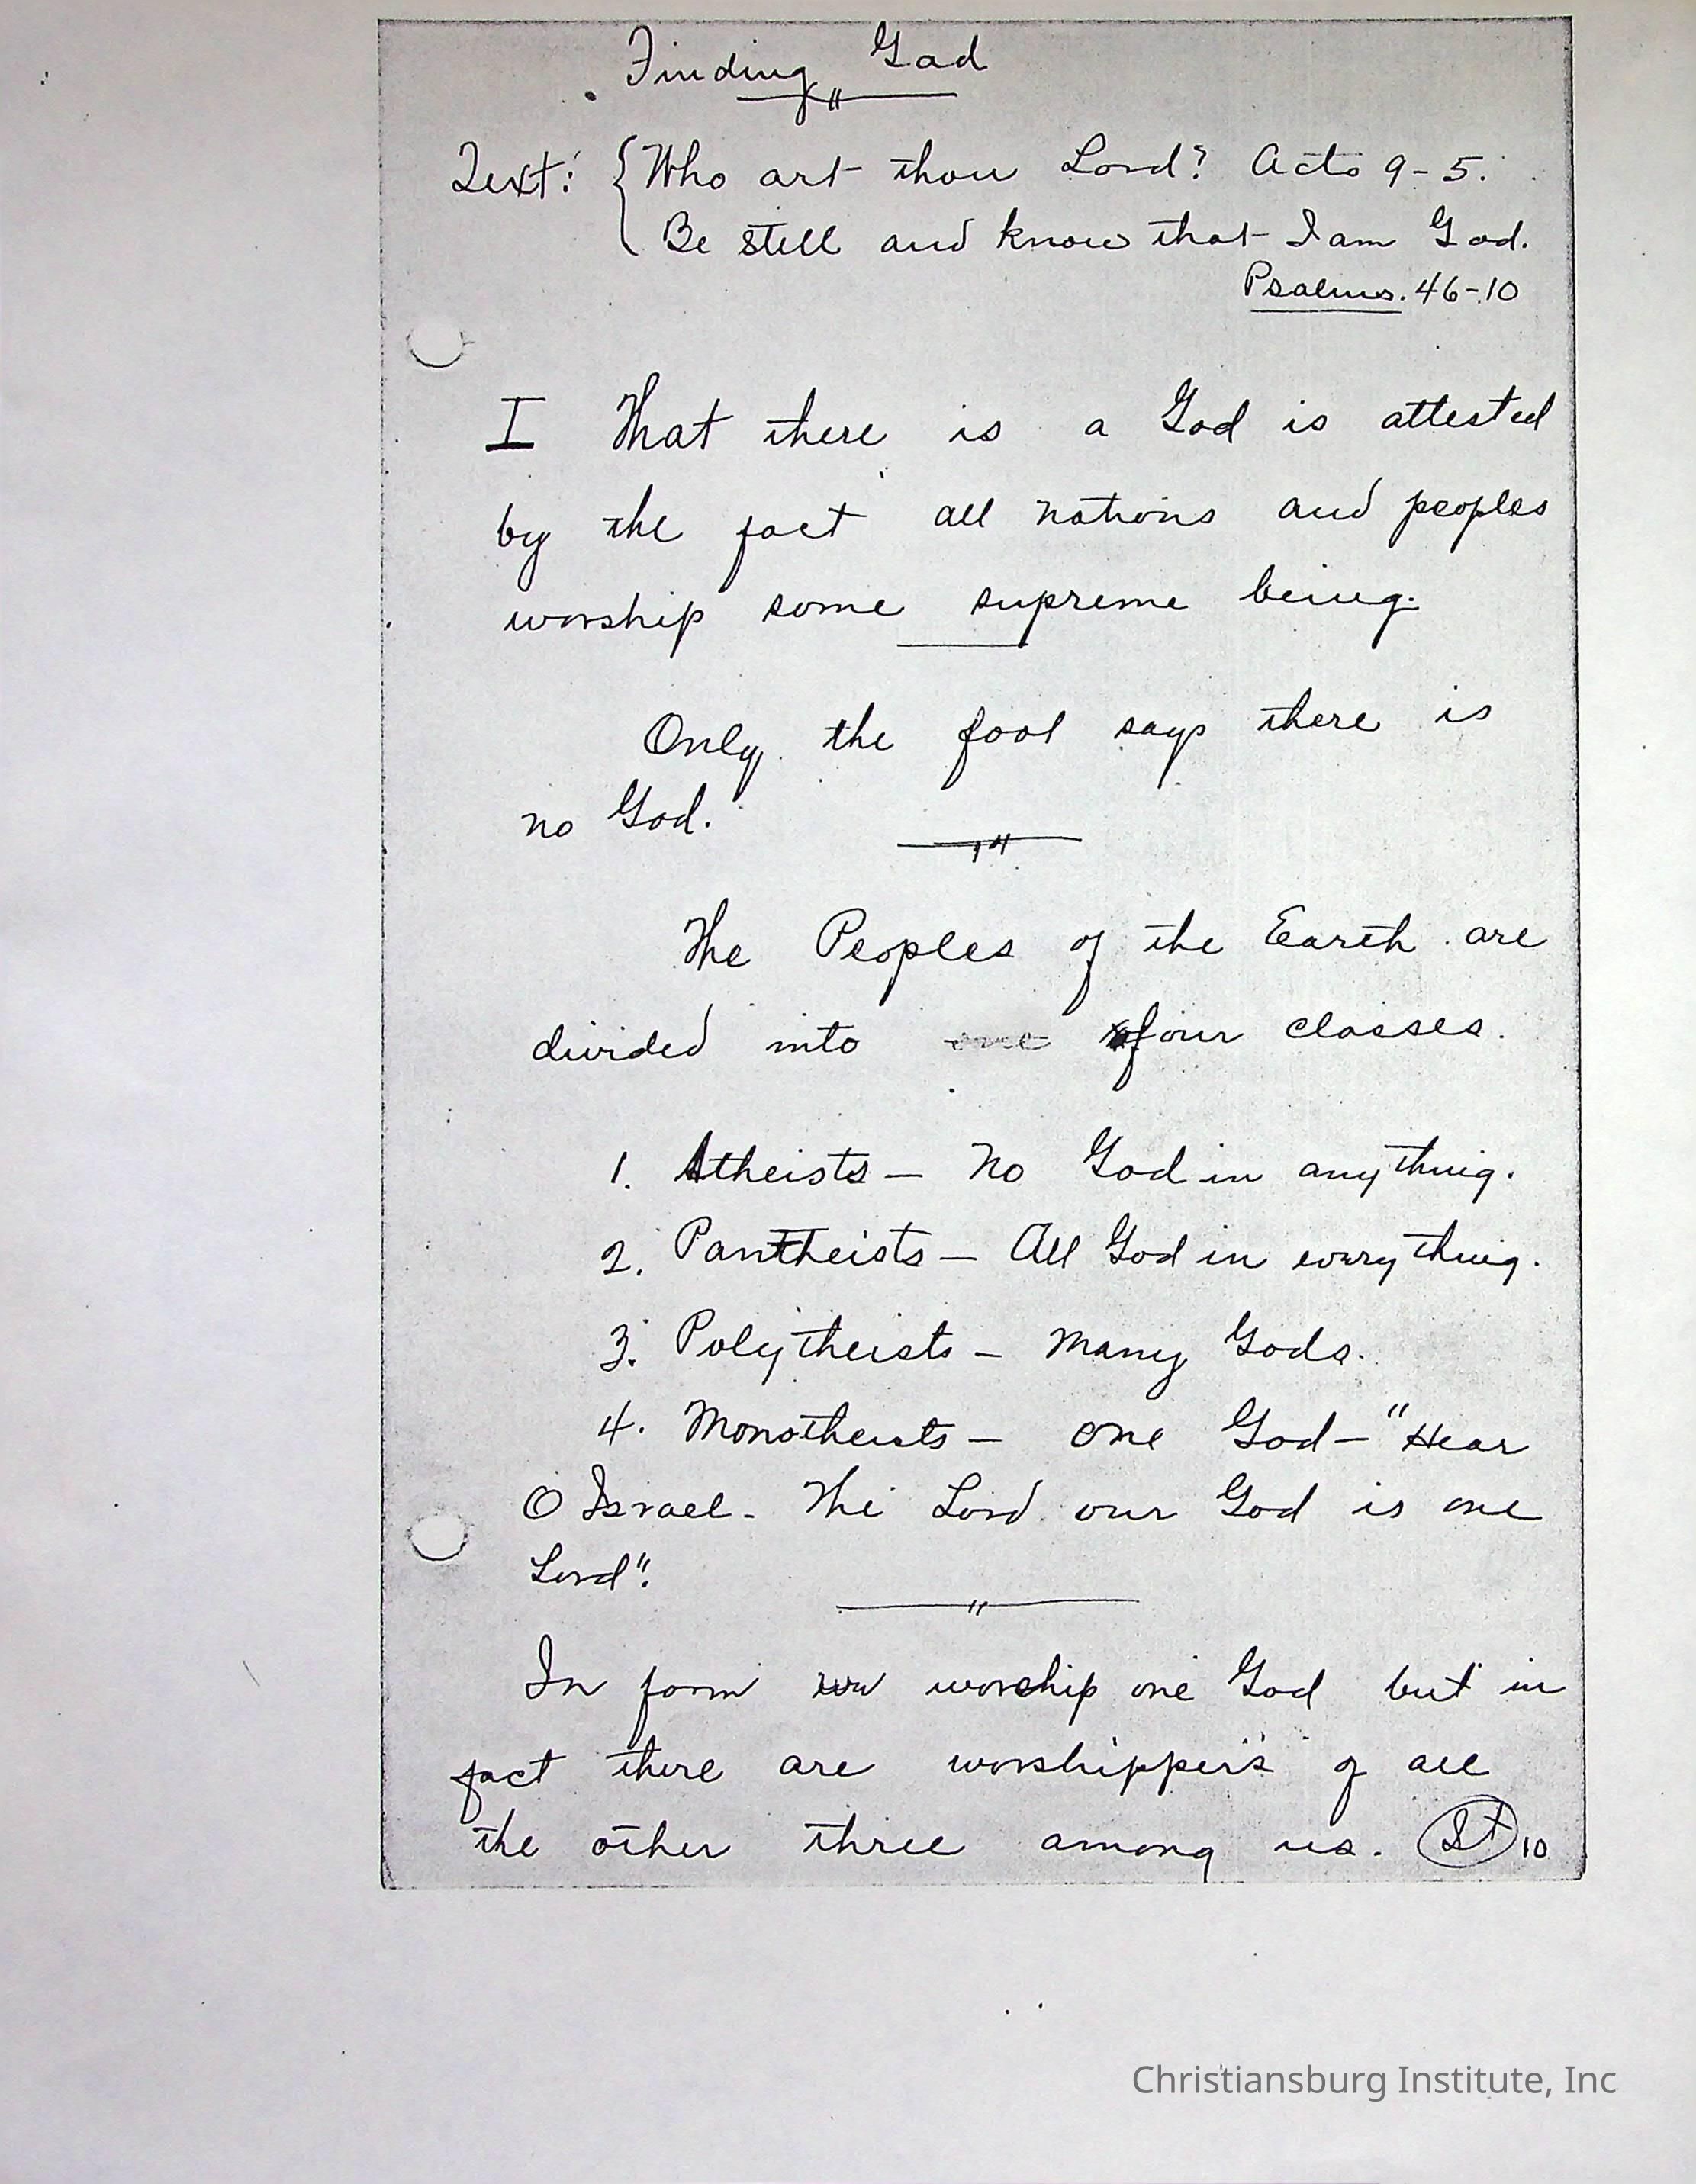 Finding God
Text: { Who art thou Lord? Acts 9-5.
Be still and know that I am God.
Psalms. 46-10
I That there is a God is attested
by the fact all nations and peoples
worship some supreme being.
Only the fool says there is
no God.
The Peoples of the Earth are
divided into one four classes.
1. Atheists — No God in anything.
2. Pantheists — All God in everything.
3. Polytheists — Many Gods.
4. Monotheists — One God — "Hear
O Israel - The Lord our God is one
Lord".
In form we worship one God but in
fact there are worshippers of all
the other three among us. St 10
Christiansburg Institute, Inc